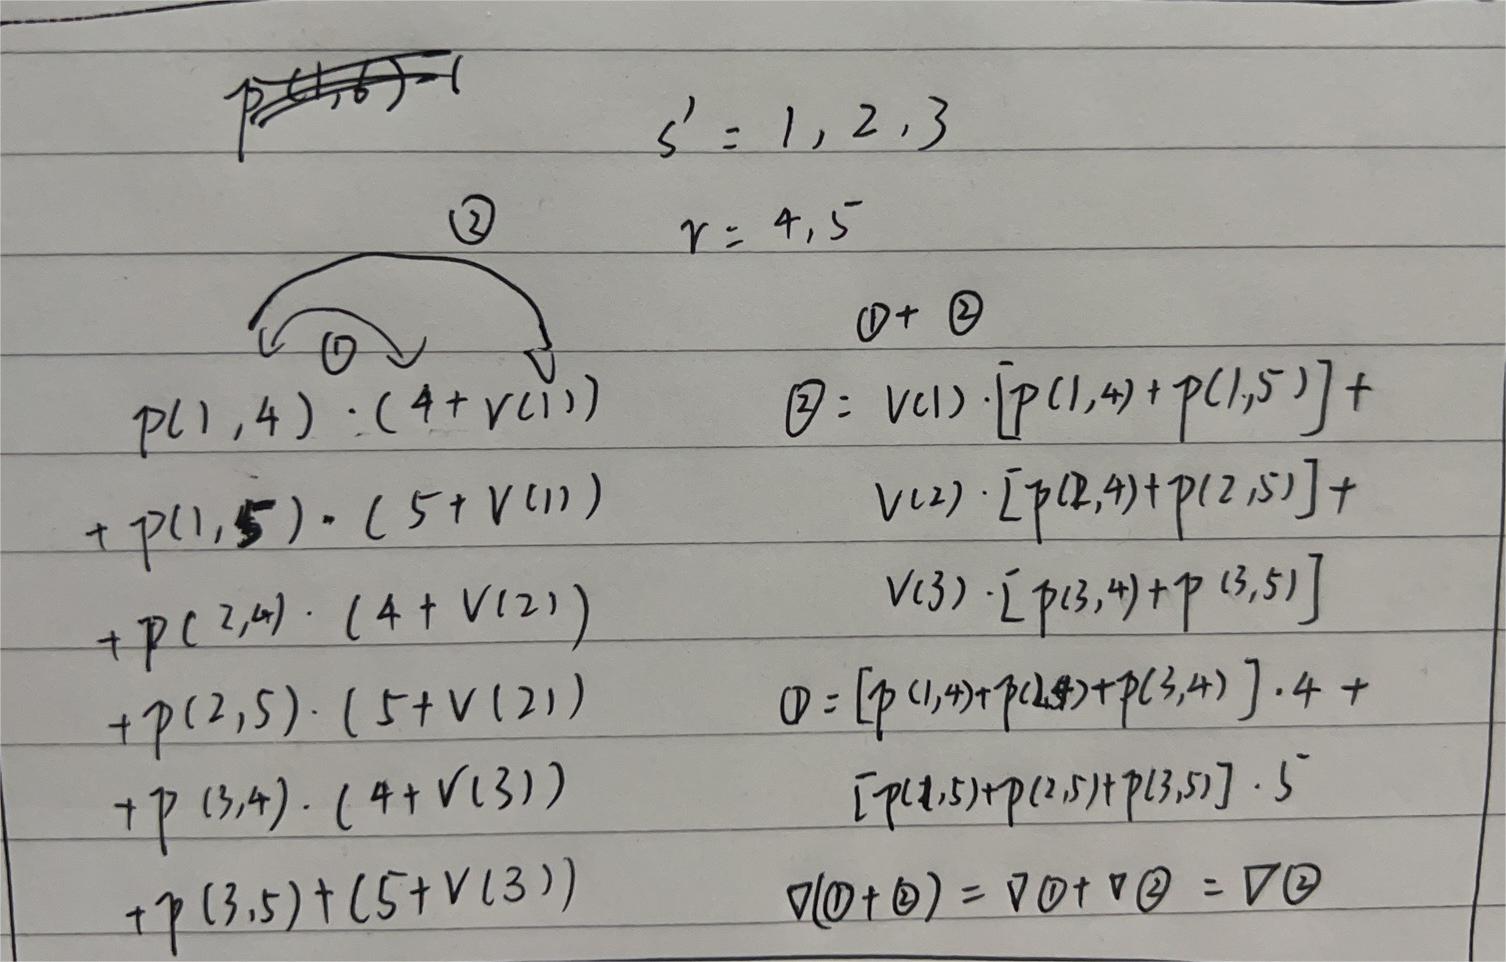 s' = 1, 2, 3
r = 4, 5
②
①
p(1,4)·(4+V(1))
+p(1,5)·(5+V(1))
+p(2,4)·(4+V(2))
+p(2,5)·(5+V(2))
+p(3,4)·(4+V(3))
+p(3,5)+(5+V(3))
①+②
②= V(1)·[p(1,4)+p(1,5)]+
V(2)·[p(2,4)+p(2,5)]+
V(3)·[p(3,4)+p(3,5)]
①=[p(1,4)+p(2,4)+p(3,4)]·4+
[p(1,5)+p(2,5)+p(3,5)]·5
∇(①+②)=∇①+∇②=∇②